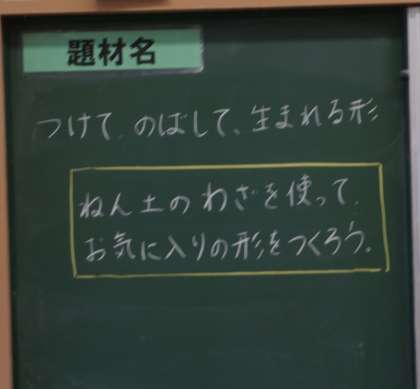 題材名
つけて、のばして、生まれる形
ねん土のわざを使って、
お気に入りの形をつくろう。